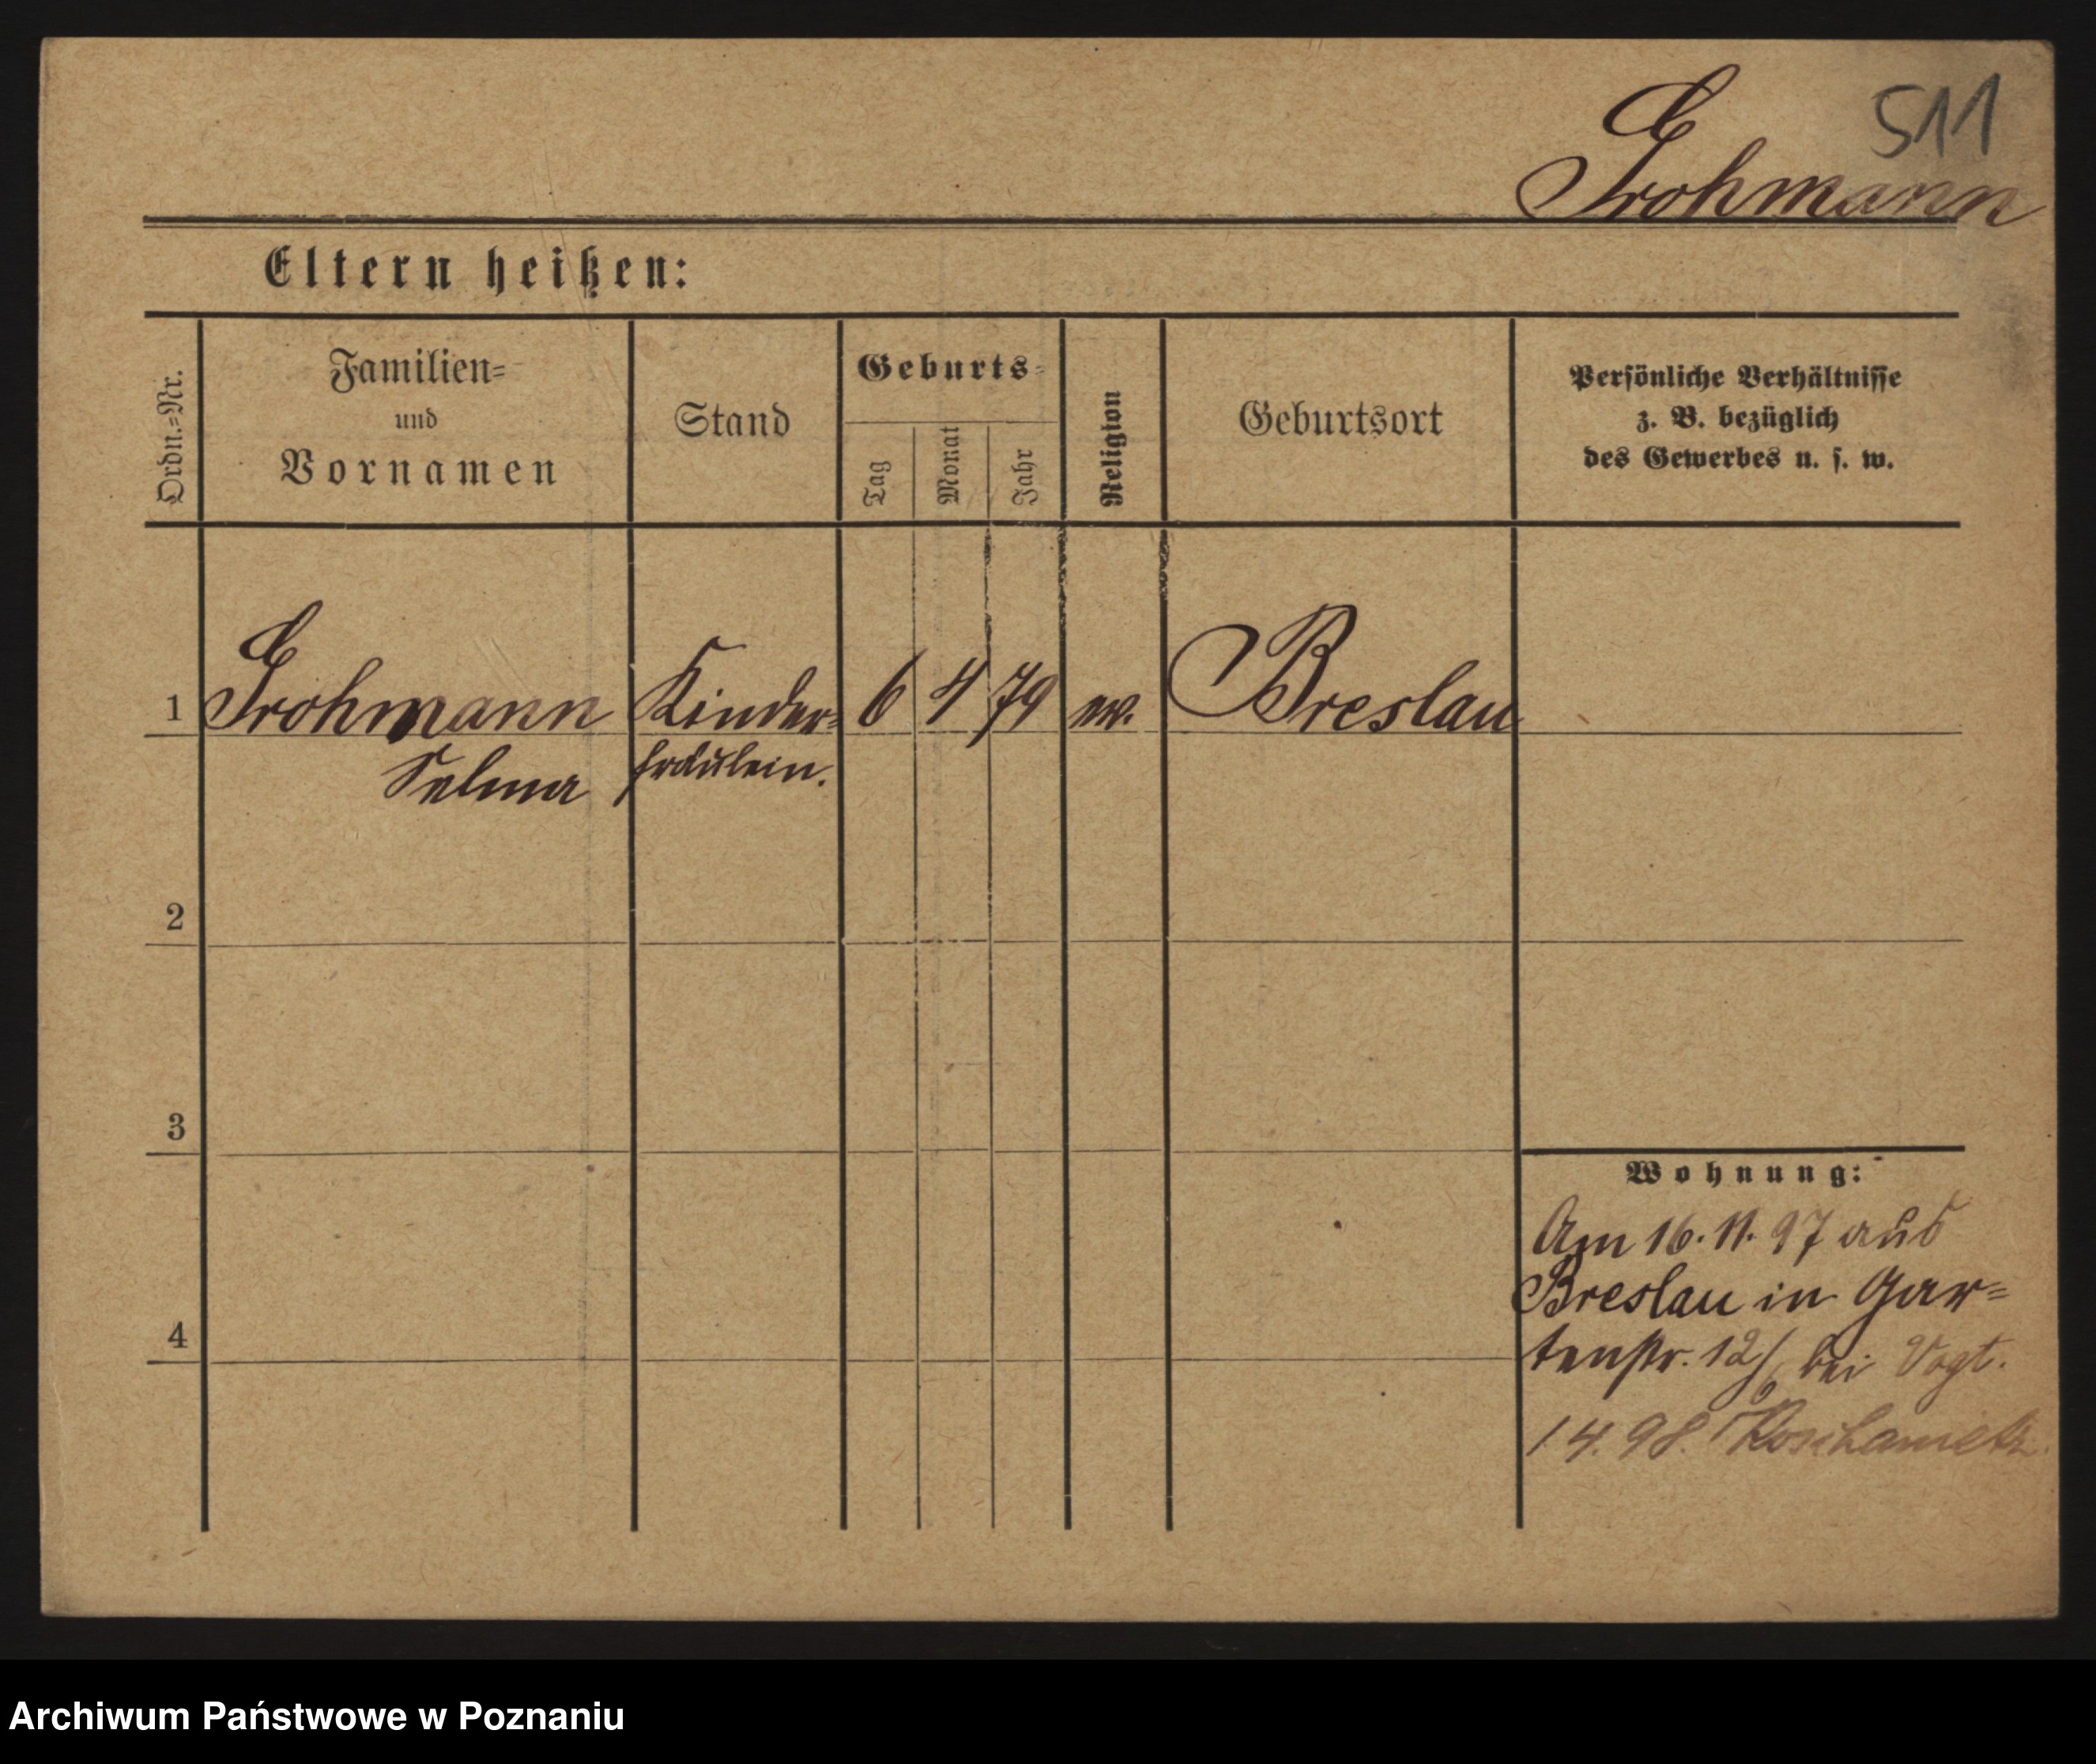 511
Grohmann
Eltern heißen:
Ordn.=Nr.
Familien=
und
Vornamen
Stand
Geburts=
Tag
Monat
Jahr
Religion
Geburtsort
Persönliche Verhältnisse
z. B. bezüglich
des Gewerbes u. s. w.
1 Grohmann Kinder= 6 4 79 ev. Breslau
Selma fräulein.
2
3
4
Wohnung:
Am 16. 11. 97 aus
Breslau in Gar=
tenstr. 12 bei Vogt.
1 4. 98.
Archiwum Państwowe w Poznaniu